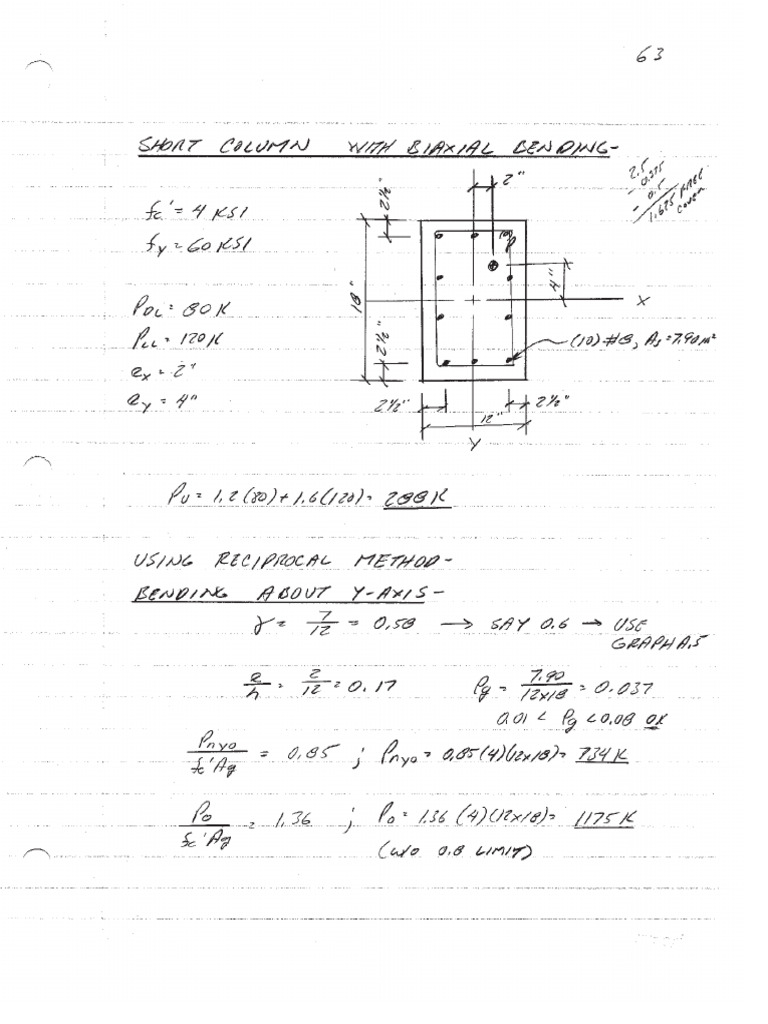 63
SHORT COLUMN WITH BIAXIAL BENDING-
2.5
- 0.375
- 0.5
1.625 FREE
COVER
fc' = 4 KSI
fy = 60 KSI
PDL = 80 K
PLL = 120 K
ex = 2"
ey = 4"
2"
2½"
18"
4"
X
2½"
(10) #8, As = 7.90 in²
2½"
2½"
12"
Y
Pu = 1.2(80) + 1.6(120) = 288 K
USING RECIPROCAL METHOD-
BENDING ABOUT Y-AXIS-
γ = 7/12 = 0.58 → SAY 0.6 → USE
GRAPH A.5
e/h = 2/12 = 0.17 ρg = 7.90/12x18 = 0.037
0.01 < ρg < 0.08 OK
Pnyo/fc'Ag = 0.85 ; Pnyo = 0.85(4)(12x18) = 734 K
Po/fc'Ag = 1.36 ; Po = 1.36(4)(12x18) = 1175 K
(w/o 0.8 LIMIT)